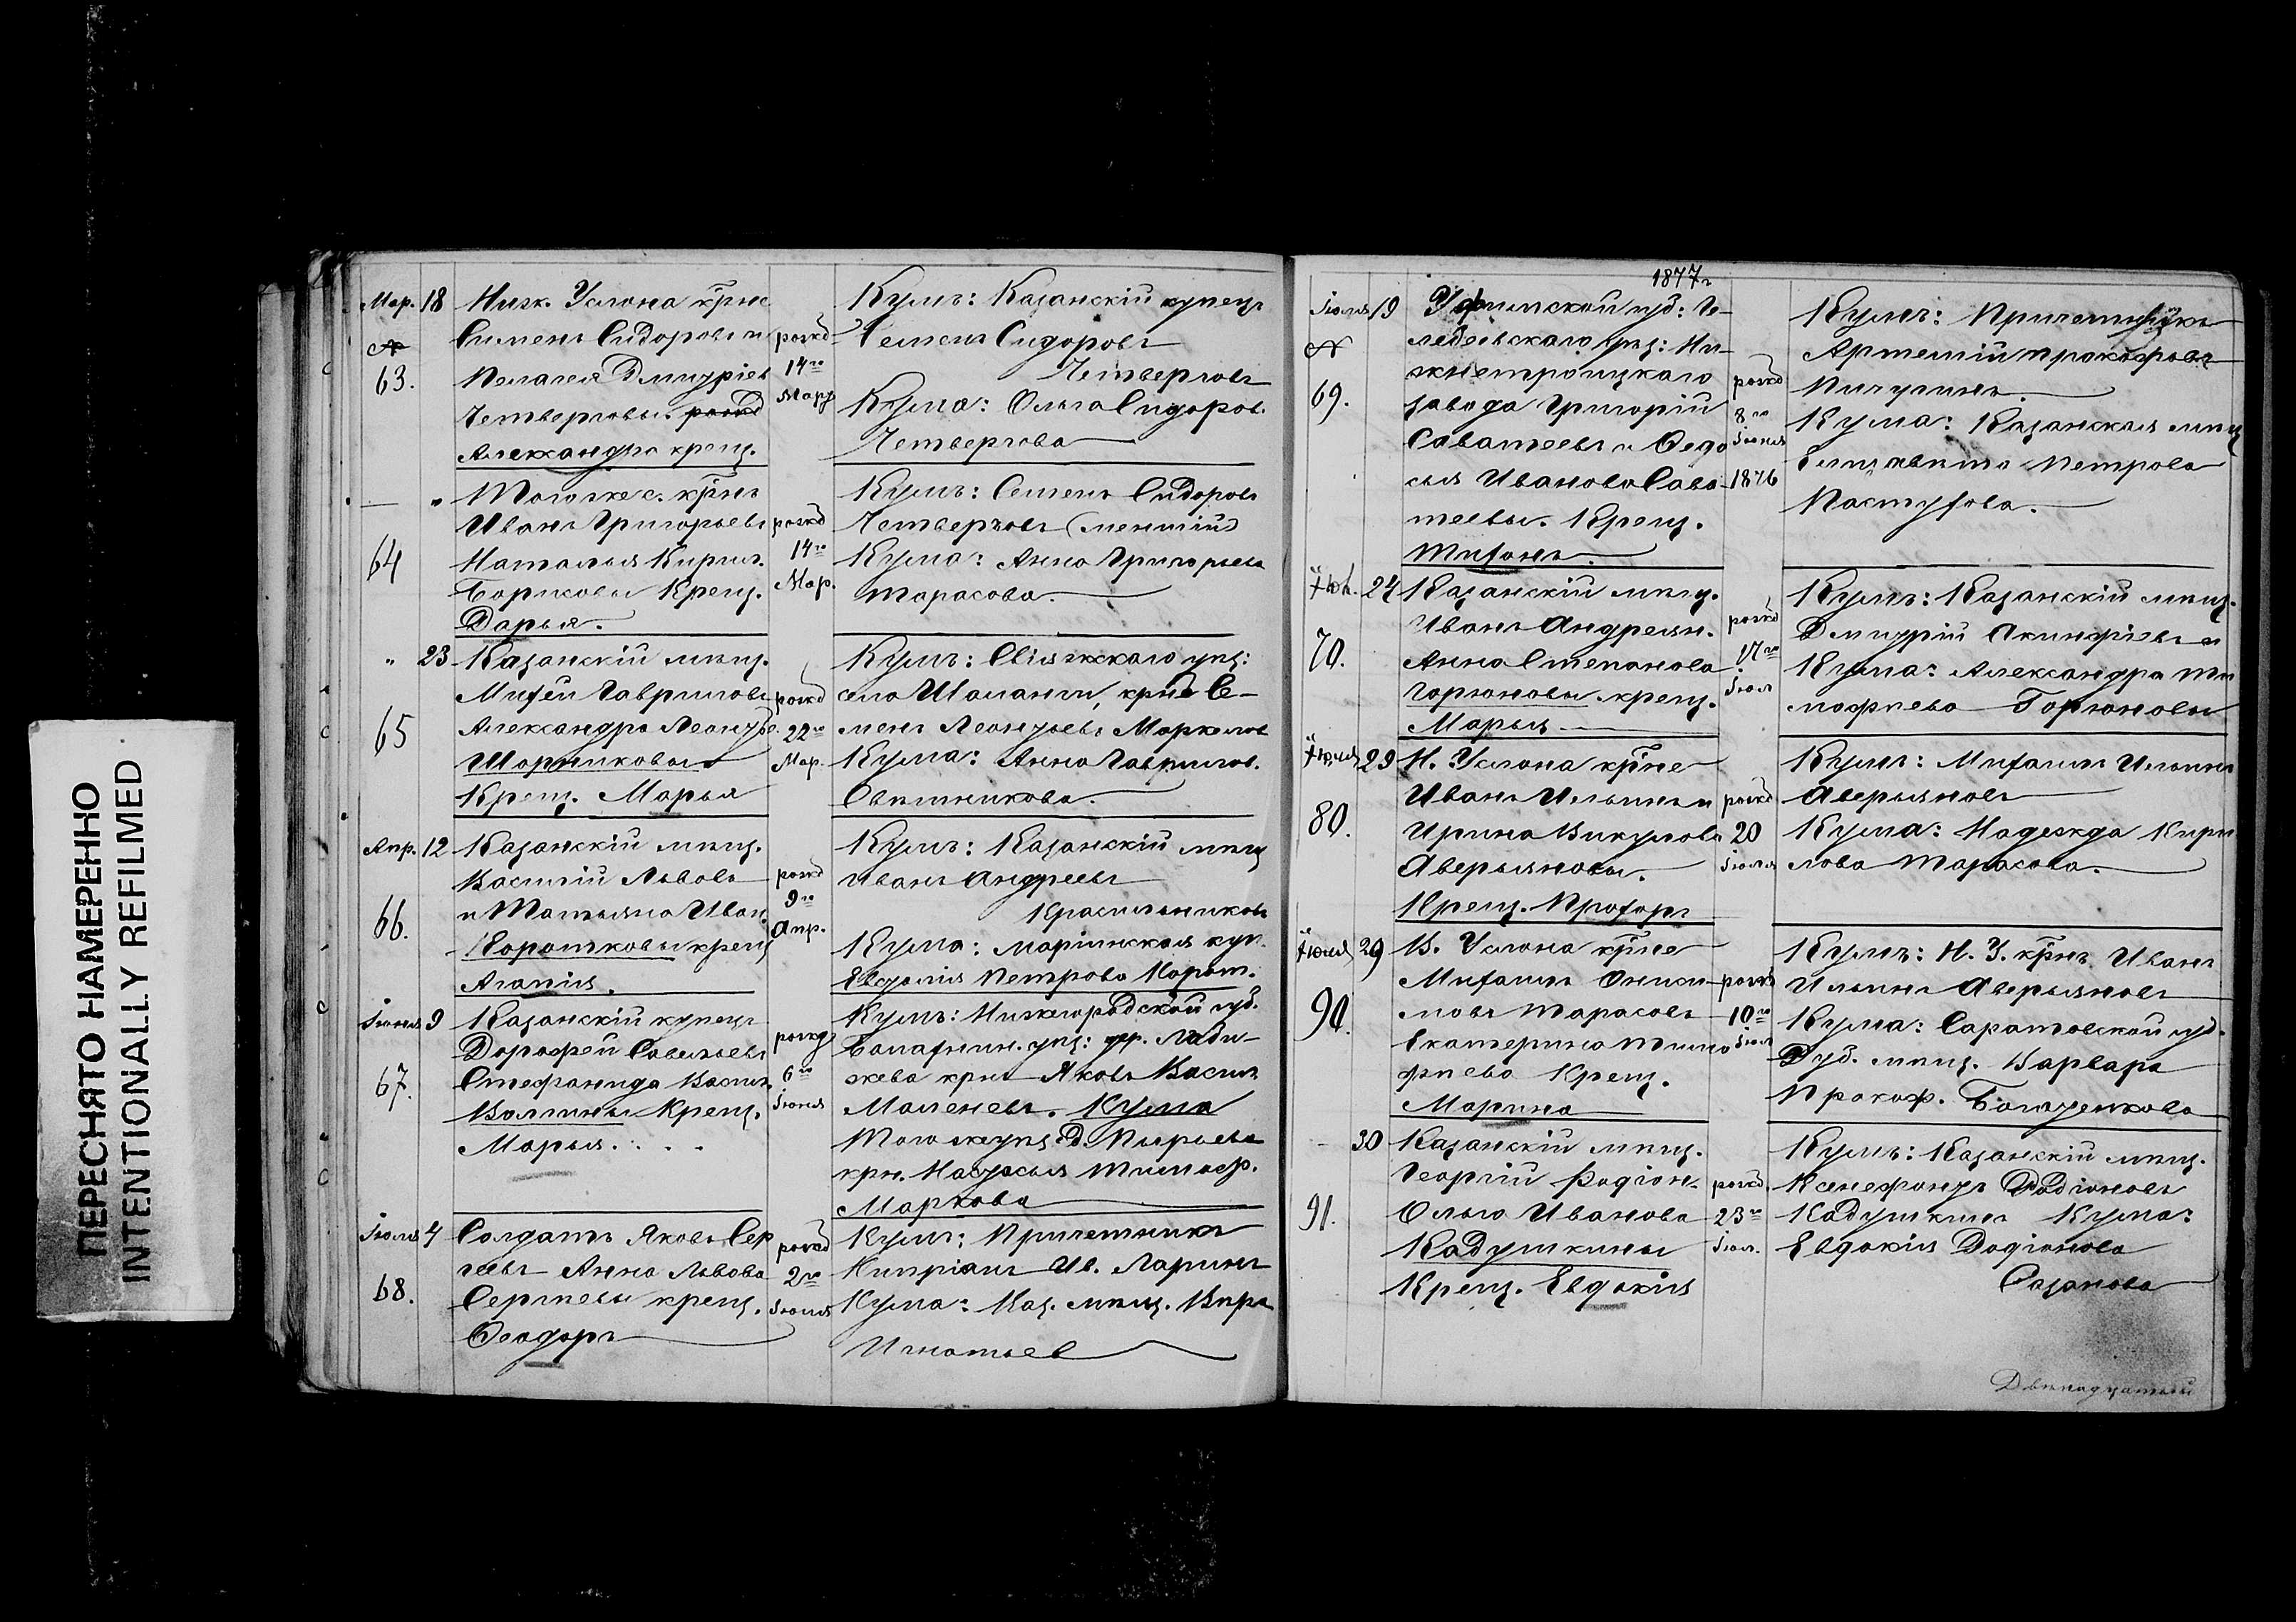 ПЕРЕСНЯТО НАМЕРЕННО
INTENTIONALLY REFILMED
Мар. 18
№
63.
Низк. Услона крн̃е
Сименъ Сидоровъ и
Пелагея Дмитріев
Четверговы.
Александра крещ.
рожд
14го
Мар
Кумъ: Казанскій купецъ
Семенъ Сидоровъ
Четверговъ
Кума: Ольга Сидоров.
Четвергова
— "
64
Того же с. крн̃ъ
Иванъ Григорьевъ
Наталья Кирил.
Борисовы Крещ.
Дарья.
рожд
14го
Мар.
Кумъ: Семенъ Сидоровъ
Четверговъ (меншій)
Кума: Анна Григорьева
Тарасова.
" 23
65
Казанскій мѣщ.
Михей Гавриловъ
Александра Леонтье.
Шорниковы
Крещ. Марья
рожд
22го
Мар.
Кумъ: Свіяжскаго уѣз:
село Шаланги, крнъ Се-
менъ Леонтьевъ Маркелов
Кума: Анна Гаврилов.
Свѣшникова.
Апр. 12
66.
Казанскій мѣщ.
Василій Львовъ
и Татьяна Иван.
Коротковы крещ
Агапія.
рожд
9го
Апр.
Кумъ: Казанскій мѣщ
Иванъ Андреевъ
Красильниковъ
Кума: маріинская куп.
Евдокія Петрова Корот.
Іюня 9
67.
Казанскій купецъ
Дорофей Савельевъ
Стефанида Васил.
Волгины Крещ.
Марья.
рожд
6го
Іюня
Кумъ: Нижегородской губ.
Балахнин. уѣз: др.
крнъ Яковъ Васил
Маленевъ. Кума
Того же уѣз. д. Пырьева
крн. Настасья Тимоф.
Маркова
Іюля 4
68.
Солдатъ Яковъ Сер
геевъ Анна Львова
Сергѣевы крещ.
Ѳеодоръ
рожд
2го
Іюля
Кумъ: Причетникъ
Кипріанъ Ив. Ларинъ
Кума: Каз. мѣщ. Вѣра
Игнатьев
1877г
Іюля 19
№
69.
Уфимской губ:
завода Григорій
Саватеевъ и Ѳедо
сья Иванова Сава-
теевы. Крещ.
Тихонъ.
рожд
8го
Іюня
1876
Кумъ: Причетникъ
Артемій Прокофьевъ
Пичугинъ.
Кума: Казанская мѣщ
Елизавета Петрова
Пастухова.
Іюл. 24
70.
Казанскій мѣщ.
Иванъ Андреян.
Анна Степанова
Горюновы. крещ.
Марья
рожд
17го
Іюл
Кумъ: Казанскій мѣщ.
Дмитрій Акинфіевъ и
Кума: Александра Ти
мофѣева Горюновы
Іюля 29
80.
Н. Услона крн̃е
Иванъ Ильинъ и
Ирина Викулова
Аверьяновы.
Крещ. Прохоръ
рожд
20
Іюля
Кумъ: Михаилъ Ильинъ
Аверьяновъ
Кума: Надежда Кири
лова Тарасова.
Іюля 29
90.
В. Услона крн̃е
МихаилъОниси-
мовъ Тарасовъ
Екатерина Тимо
фѣева Крещ.
Марина
рожд
10го
Іюл
Кумъ: Н. У. крн̃ъ Иванъ
Ильинъ Аверьяновъ
Кума: Саратовской губ.
Дуб. мѣщ. Варвара
Прокоф.
— 30
91.
Казанскій мѣщ.
Георгій Родіон.
Ольга Иванова
Кадушкины
Крещ. Евдокія
рожд.
23го
Іюл.
Кумъ: Казанскій мѣщ.
Ксенефонтъ Родіоновъ
Кадушкинъ Кума:
Евдокія Родіонова
Сазанова
Двѣнадцатый